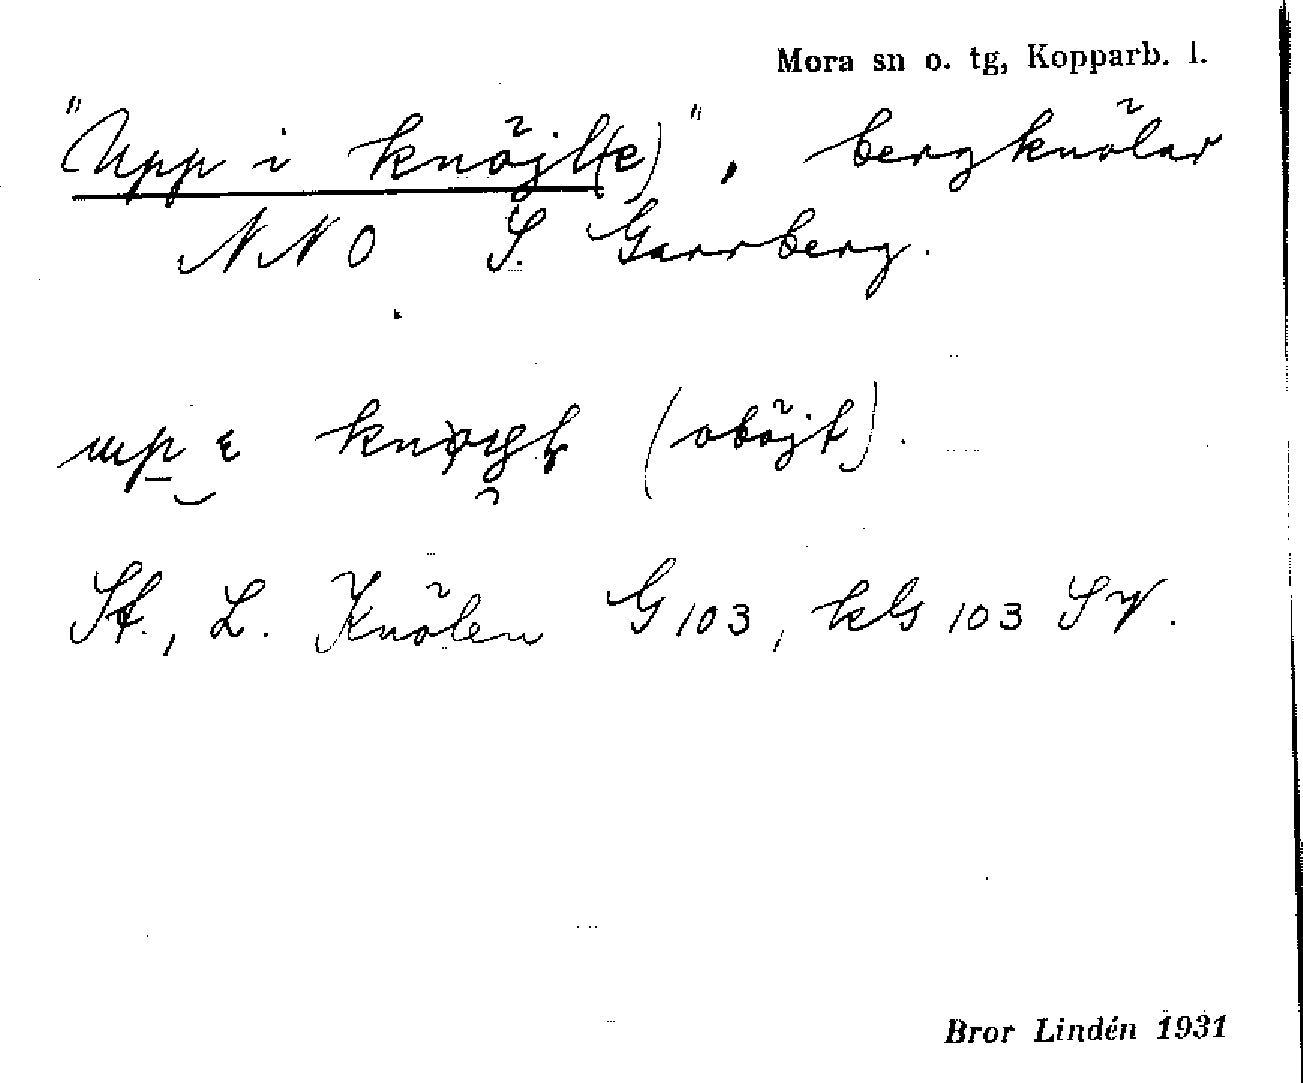 Mora sn o. tg, Kopparb. l.
"Upp i knöjl(e)", bergknölar
NNO S. Garrberg.
(oböjt).
St., L. Knölen G 103, kls 103 SV.
Bror Lindén 1931